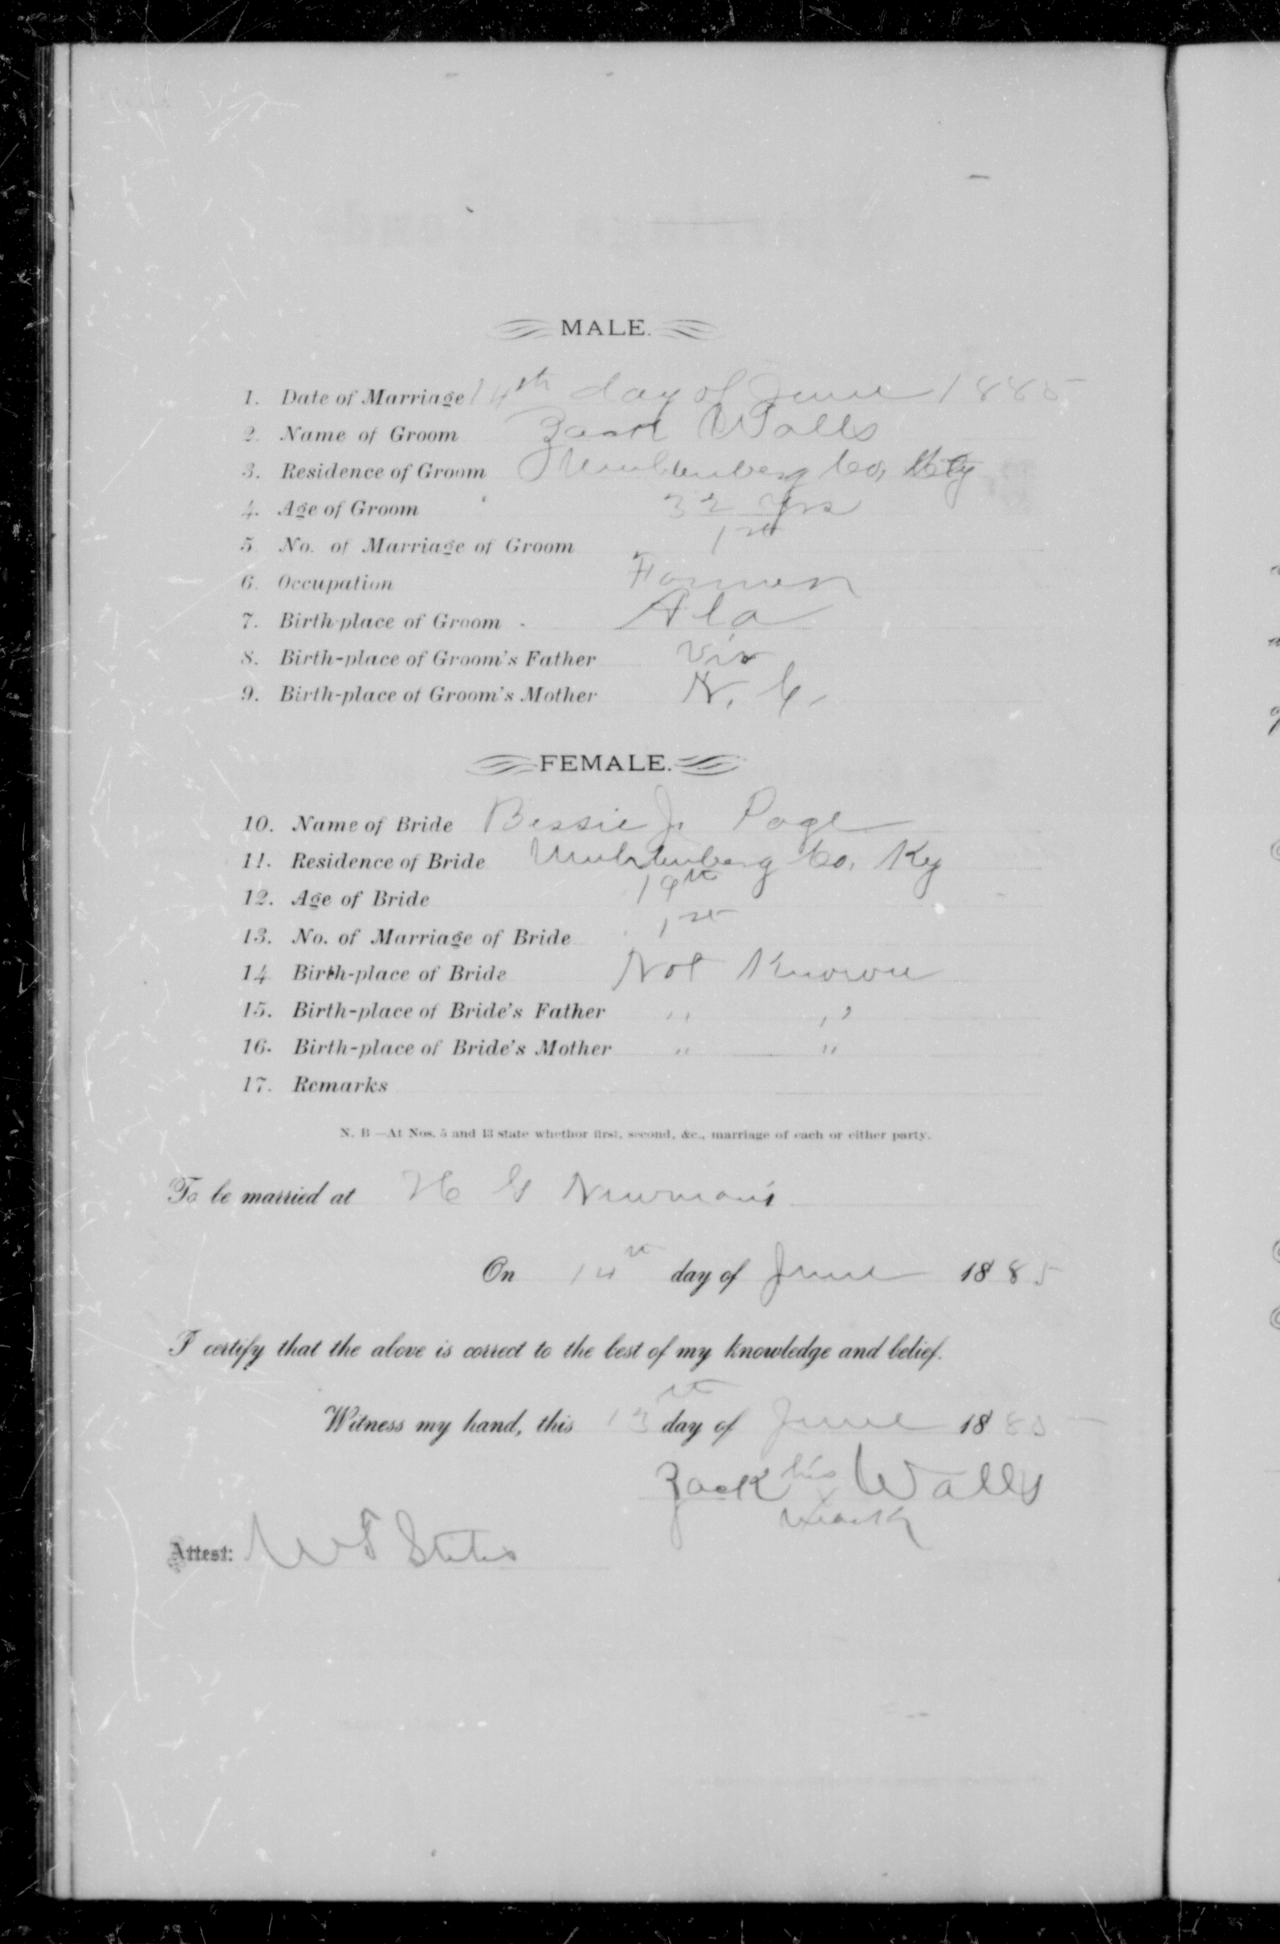 MALE.
1. Date of Marriage 14th day of June 1885
2. Name of Groom Zack Walls
3. Residence of Groom Muhlenberg Co, Ky
4. Age of Groom 32 yrs
5 No. of Marriage of Groom 1st
6. Occupation Farmer
7. Birth-place of Groom Ala
8. Birth-place of Groom's Father Vir
9. Birth-place of Groom's Mother N. C.
FEMALE.
10. Name of Bride Bessie J. Page
11. Residence of Bride Muhlenberg Co, Ky
12. Age of Bride 19th
13. No. of Marriage of Bride 1st
14 Birth-place of Bride Not Known
15. Birth-place of Bride's Father " "
16. Birth-place of Bride's Mother " "
17. Remarks
N. B—At Nos. 5 and 13 state whethor first, second, &c., marriage of each or either party.
To be married at H G Newman's
On 14th day of June 1885
I certify that the above is correct to the best of my knowledge and belief.
Witness my hand, this 13th day of June 1885
Zack his X mark Walls
Attest: W T Stiles